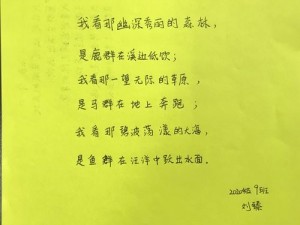 我看那幽深秀丽的森林，
是鹿群在溪边低饮；
我看那一望无际的草原，
是马群在地上奔跑；
我看那碧波荡漾的大海，
是鱼群在汪洋中跃出水面．
2020级9班
刘臻